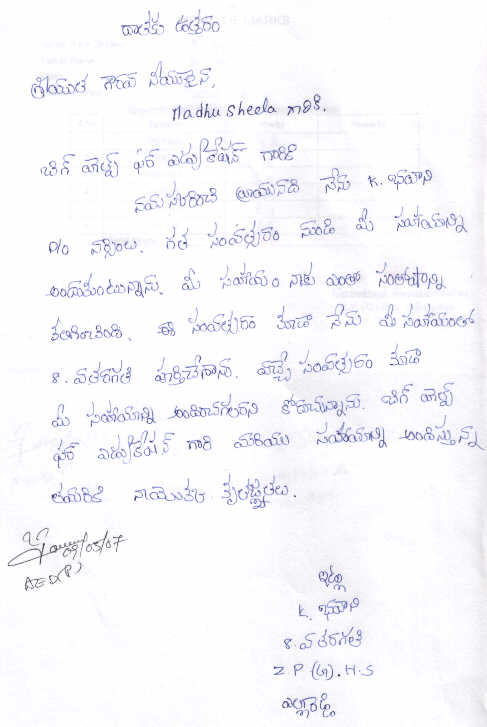 దాతకు ఉత్తరం
శ్రీయుత గౌరవ నీయులైన,
Madhu Sheela గారికి.
బిగ్ హెల్ప్ ఫర్ ఎడ్యుకేషన్ గారికి
నమస్కరించి వ్రాయునది నేను K. భవాని
D/o నర్సింలు. గత సంవత్సరం నుండి మీ సహాయాన్ని
అందుకుంటున్నాను. మీ సహాయం నాకు ఎంతో సంతోషాన్ని
కలిగించింది. ఈ సంవత్సరం కూడా నేను మీ సహాయంతో
8. వతరగతి పూర్తిచేసాను. వచ్చే సంవత్సరం కూడా
మీ సహాయాన్ని అందించగలరని కోరుచున్నాను. బిగ్ హెల్ప్
ఫర్ ఎడ్యుకేషన్ గారి మరియు సహాయాన్ని అందిస్తున్న
తయరికి నాయొక్క కృతజ్ఞతలు.
09/05/07
ఇట్లు
K. భవాని
8. వ తరగతి
Z.P (G). H.S
ఎల్లారెడ్డి